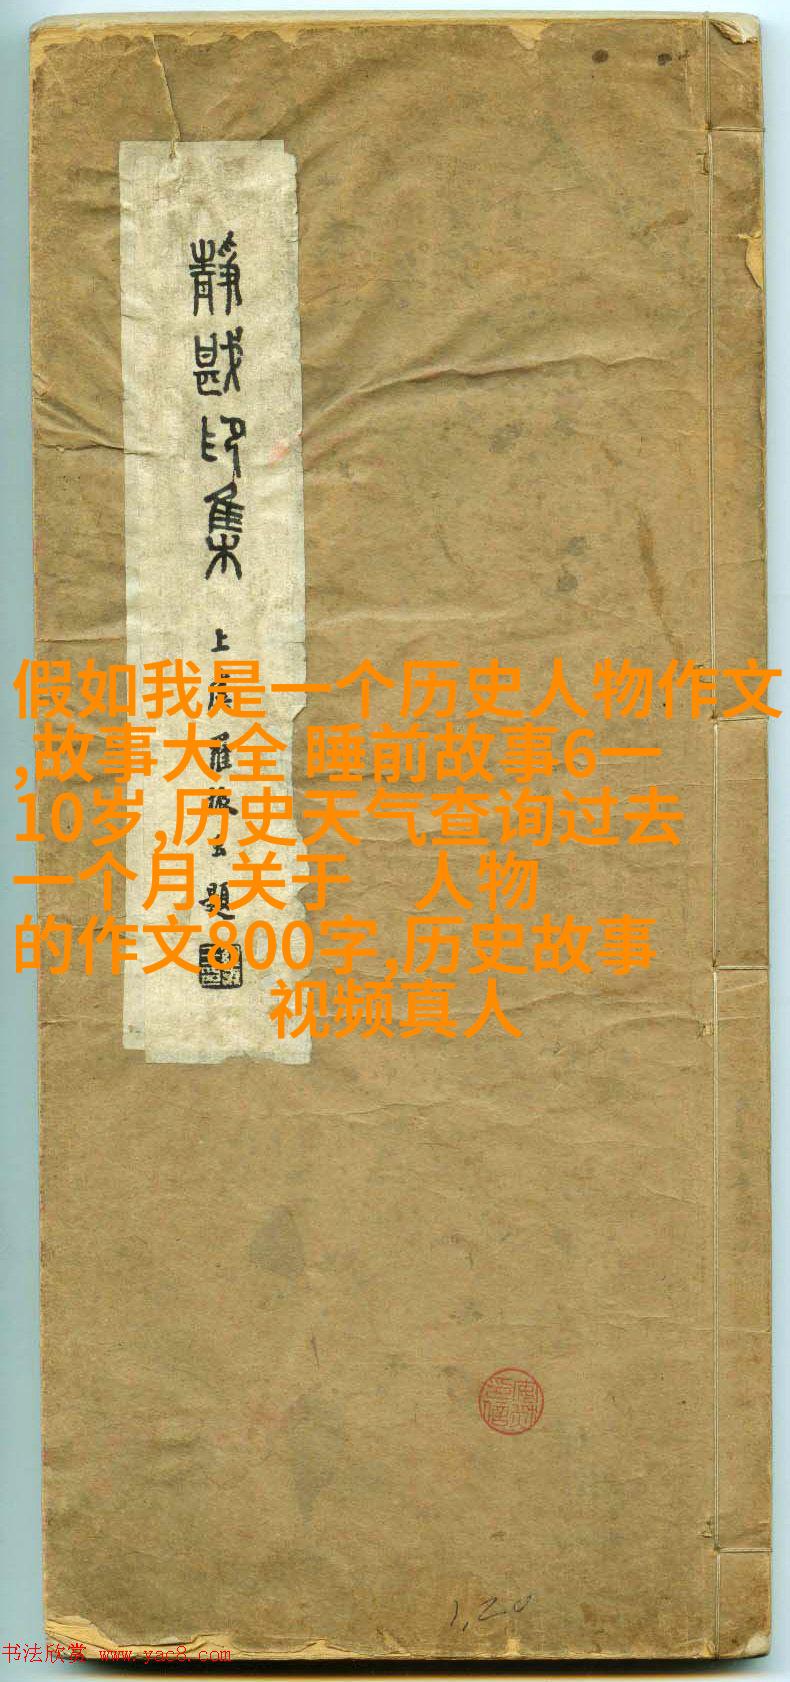 靜戡印集
上虞羅振玉題
假如我是一个历史人物作文
,故事大全 睡前故事6一
10岁,历史天气查询过去
一个月,关于 人物
的作文800字,历史故事
视频真人
1,20
书法欣赏 www.yac8.com